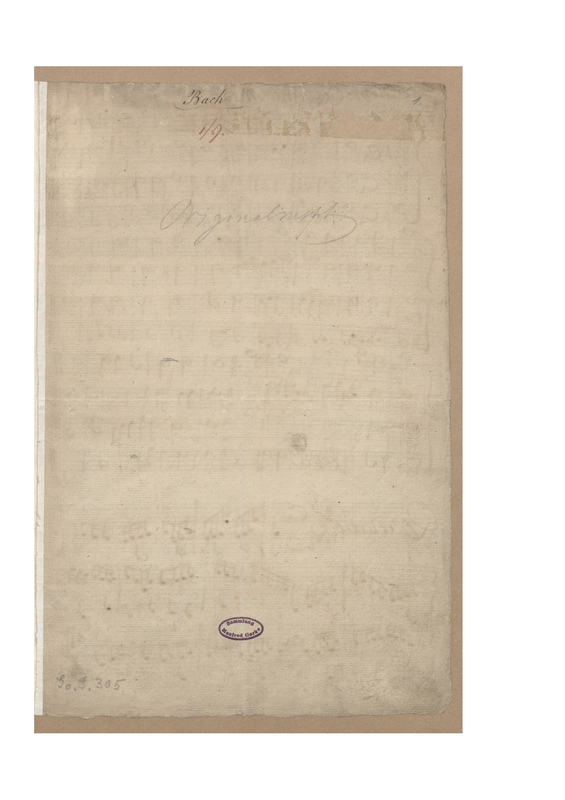 Bach
1.
1/9.
Sammlung
Manfred Gorke
Go. S. 305